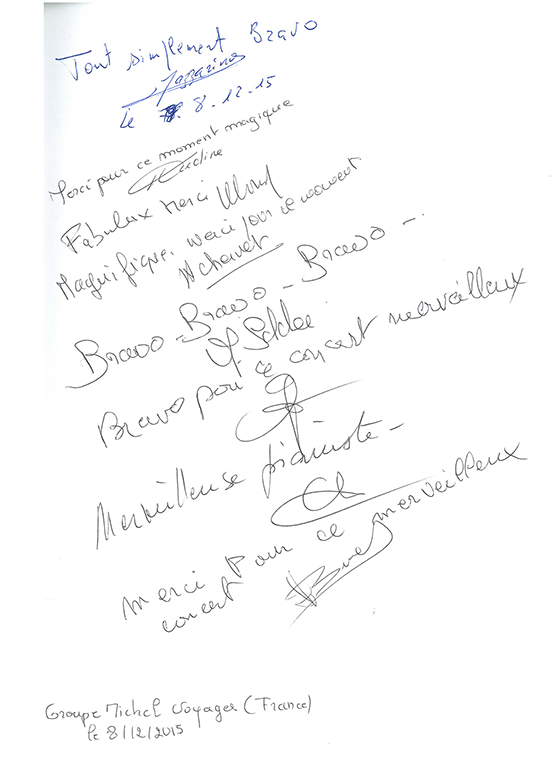 Tout simplement Bravo
le 8.12.15
Merci pour ce moment magique
Fabuleux Merci
Magnifique, merci pour ce moment
Bravo - Bravo - Bravo -
Bravo pour ce concert merveilleux
Merveilleuse pianiste -
merci pour ce merveilleux
concert
Groupe Michel Voyages (France)
le 8/12/2015